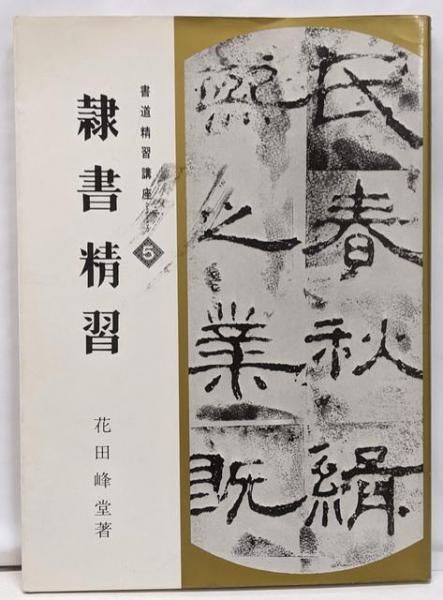 書道精習講座
5
隷書精習
花田峰堂著
氏春秋緝
熙之業既